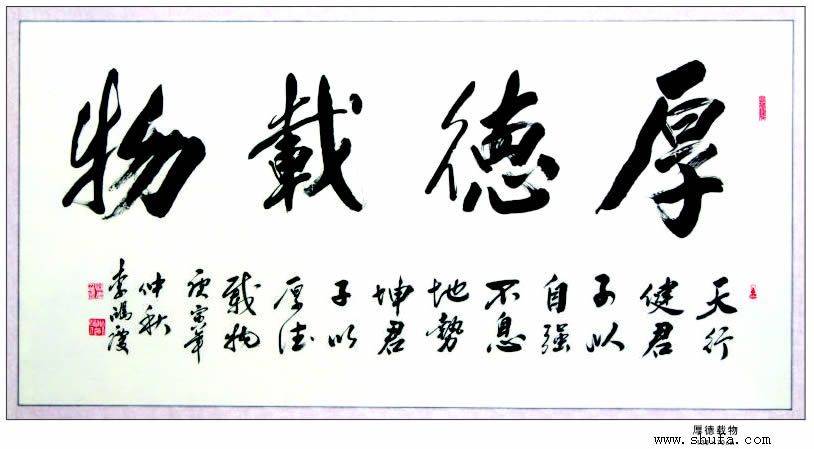 厚德載物
天行
健君
子以
自强
不息
地勢
坤君
子以
厚德
載物
庚寅年
仲秋
李鴻
厚德载物
www.shufa.com